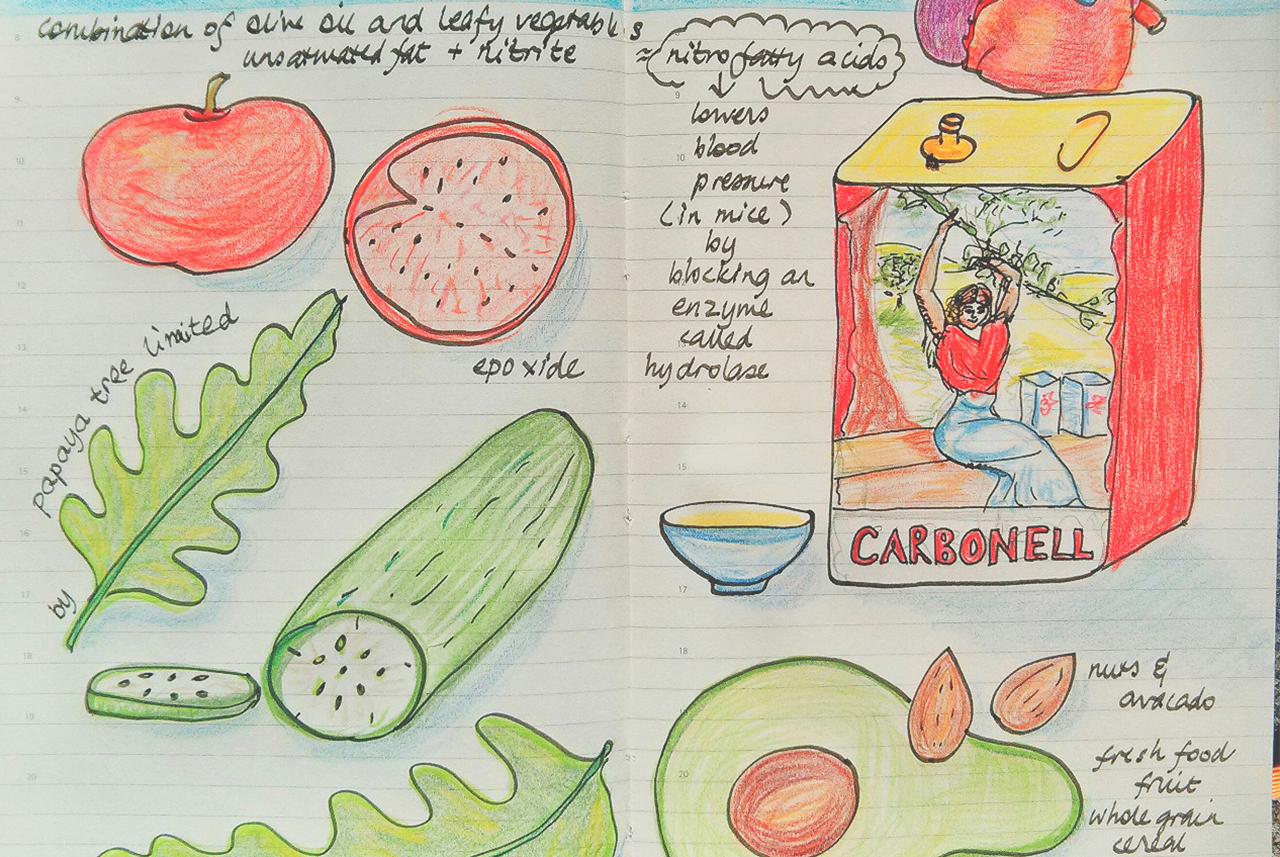 combination of olive oil and leafy vegetables
unsaturated fat + nitrite
≈ nitro fatty acids
↓
lowers
blood
pressure
(in mice)
by
blocking an
enzyme
called
epoxide hydrolase
by papaya tree limited
CARBONELL
nuts &
avacado
fresh food
fruit
whole grain
cereal
8
9
10
11
12
13
14
15
16
17
18
19
20
9
10
13
14
15
17
18
20